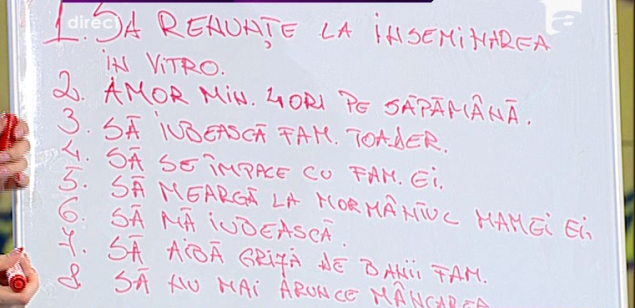 direct
1. SĂ RENUNȚE LA ÎNSEMINAREA
ÎN VITRO.
2. AMOR MIN. 4 ORI PE SĂPĂMÂNĂ.
3. SĂ IUBEASCĂ FAM. TOADER.
4. SĂ SE ÎMPACE CU FAM. EI.
5. SĂ MEARGĂ LA MORMÂNTUL MAMEI EI,
6. SĂ MĂ IUBEASCĂ.
7. SĂ AIBĂ GRIJĂ DE BANII FAM.
8 SĂ NU MAI ARUNCE MÂNCAREA